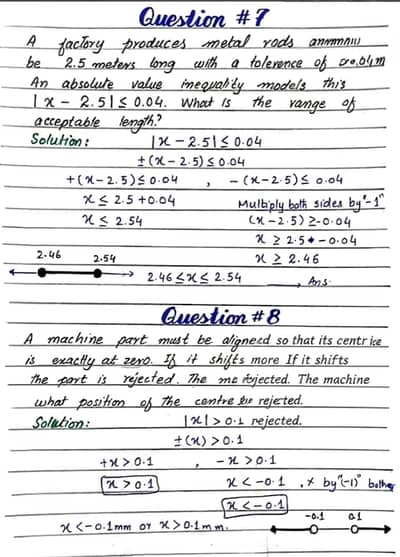 Question #7
A factory produces metal rods
be 2.5 meters long with a tolerence of
An absolute value inequality models this
|x - 2.5| ≤ 0.04. What is the range of
acceptable length?
Solution: |x - 2.5| ≤ 0.04
±(x - 2.5) ≤ 0.04
+(x - 2.5) ≤ 0.04 , -(x - 2.5) ≤ 0.04
x ≤ 2.5 + 0.04 Multiply both sides by "-1"
x ≤ 2.54 (x - 2.5) ≥ -0.04
x ≥ 2.5 + -0.04
2.46 2.54 x ≥ 2.46
2.46 ≤ x ≤ 2.54 Ans.
Question #8
A machine part must be aligned so that its centr ice
is exactly at zero. If it shifts more If it shifts
the part is rejected. The rejected. The machine
what position of the centre rejected.
Solution: |x| > 0.1 rejected.
±(x) > 0.1
+x > 0.1 , -x > 0.1
x > 0.1 x < -0.1 , x by "(-1)"
x < -0.1
x < -0.1mm or x > 0.1mm. -0.1 0.1